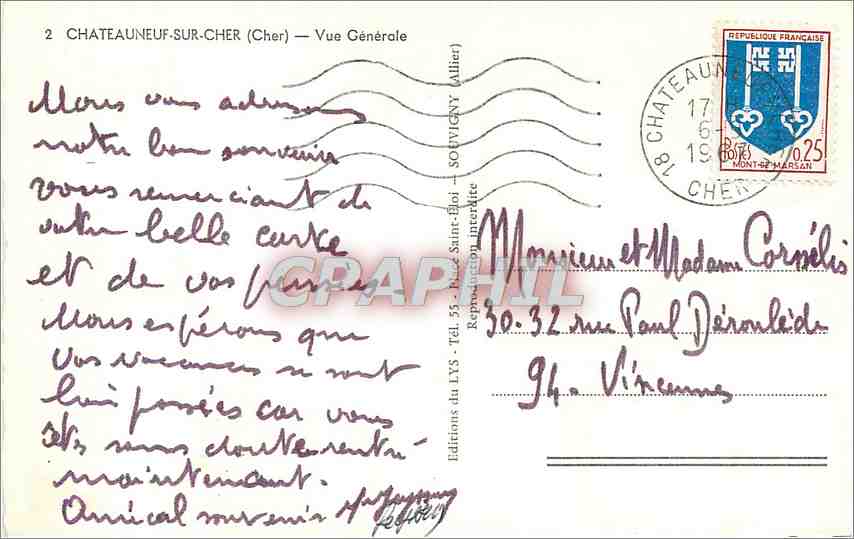 2 CHATEAUNEUF-SUR-CHER (Cher) — Vue Générale
Nous vous adressons
notre bon souvenir
vous remerciant de
votre belle carte
et de vos pensées.
Nous espérons que
vos vacances se sont
bien passées car vous
êtes sans doute rentrés
maintenant.
Amical souvenir
Editions du LYS - Tél. 55 - Place Saint-Eloi — SOUVIGNY (Allier)
Reproduction interdite
REPUBLIQUE FRANÇAISE
POSTES
0,25
MONT-DE-MARSAN
18 CHATEAUNEUF
17 H
6-
1967
CHER
Monsieur et Madame Corsélis
30-32 rue Paul Déroulède
94. Vincennes
CPAPHIL